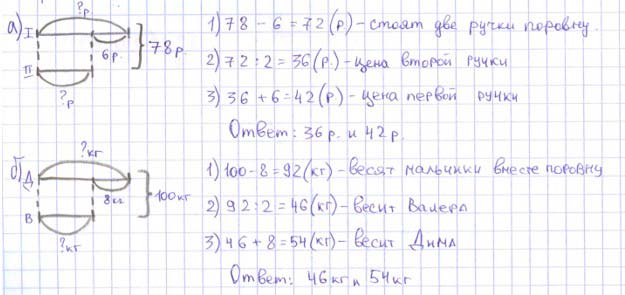 а) I ?р 6р. 78р.
II ?р
1) 78 - 6 = 72 (р) - стоят две ручки поровну.
2) 72 : 2 = 36 (р.) - цена второй ручки
3) 36 + 6 = 42 (р) - цена первой ручки
Ответ: 36 р. и 42 р.
б) Д ?кг 8кг 100кг
В ?кг
1) 100 - 8 = 92 (кг) - весят мальчики вместе поровну
2) 92 : 2 = 46 (кг) - весит Валера
3) 46 + 8 = 54 (кг) - весит Дима
Ответ: 46 кг и 54 кг